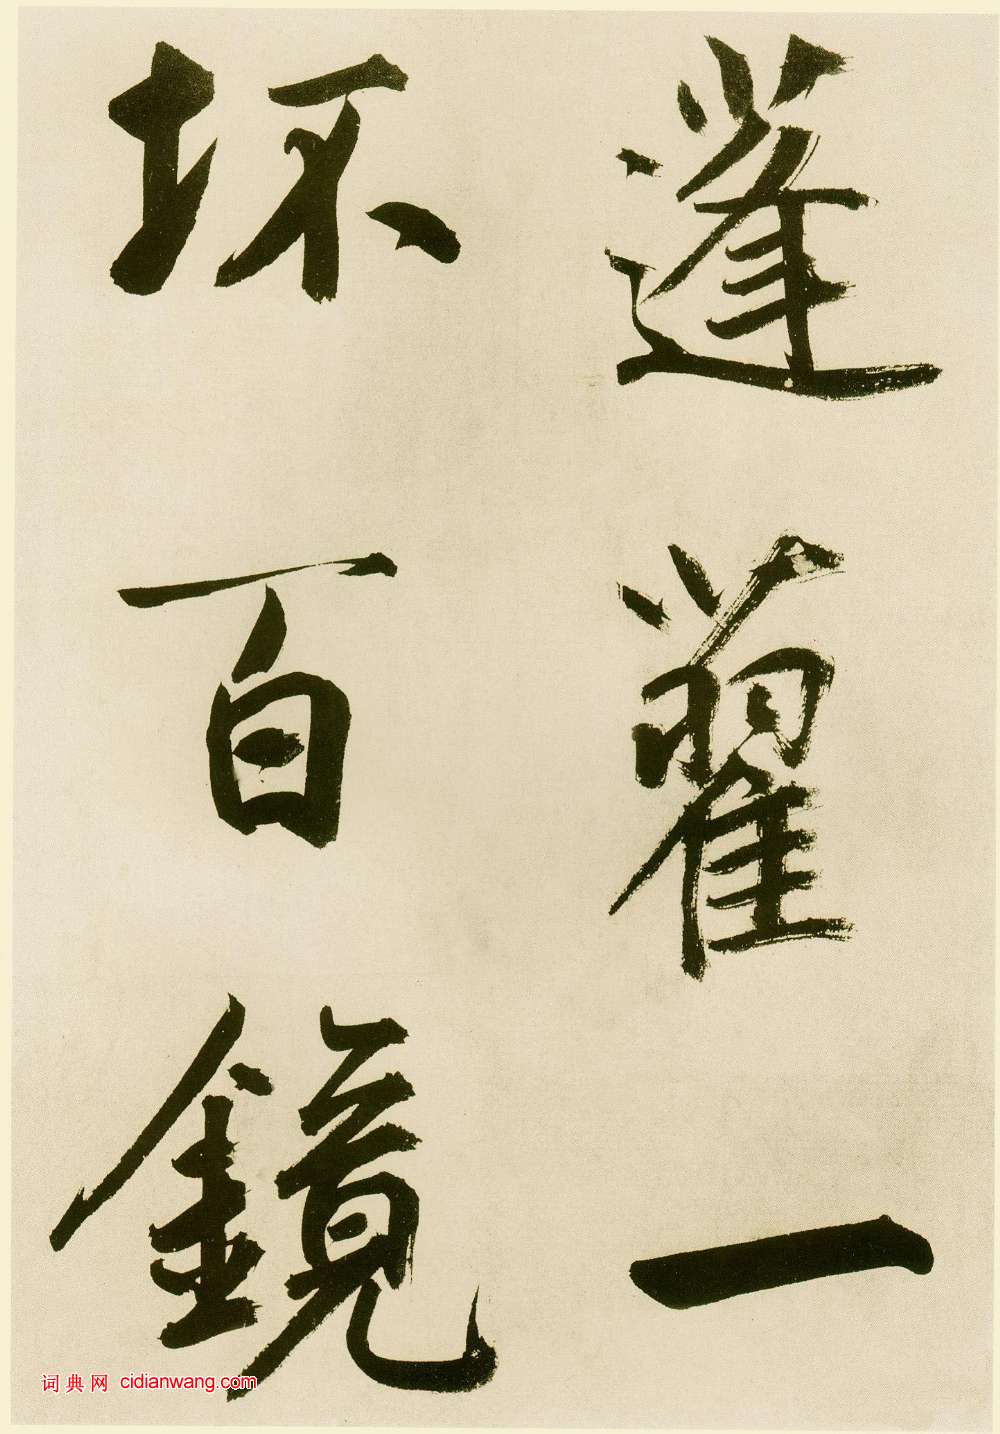 蓬藋一
坏百鏡
词典网 cidianwang.com